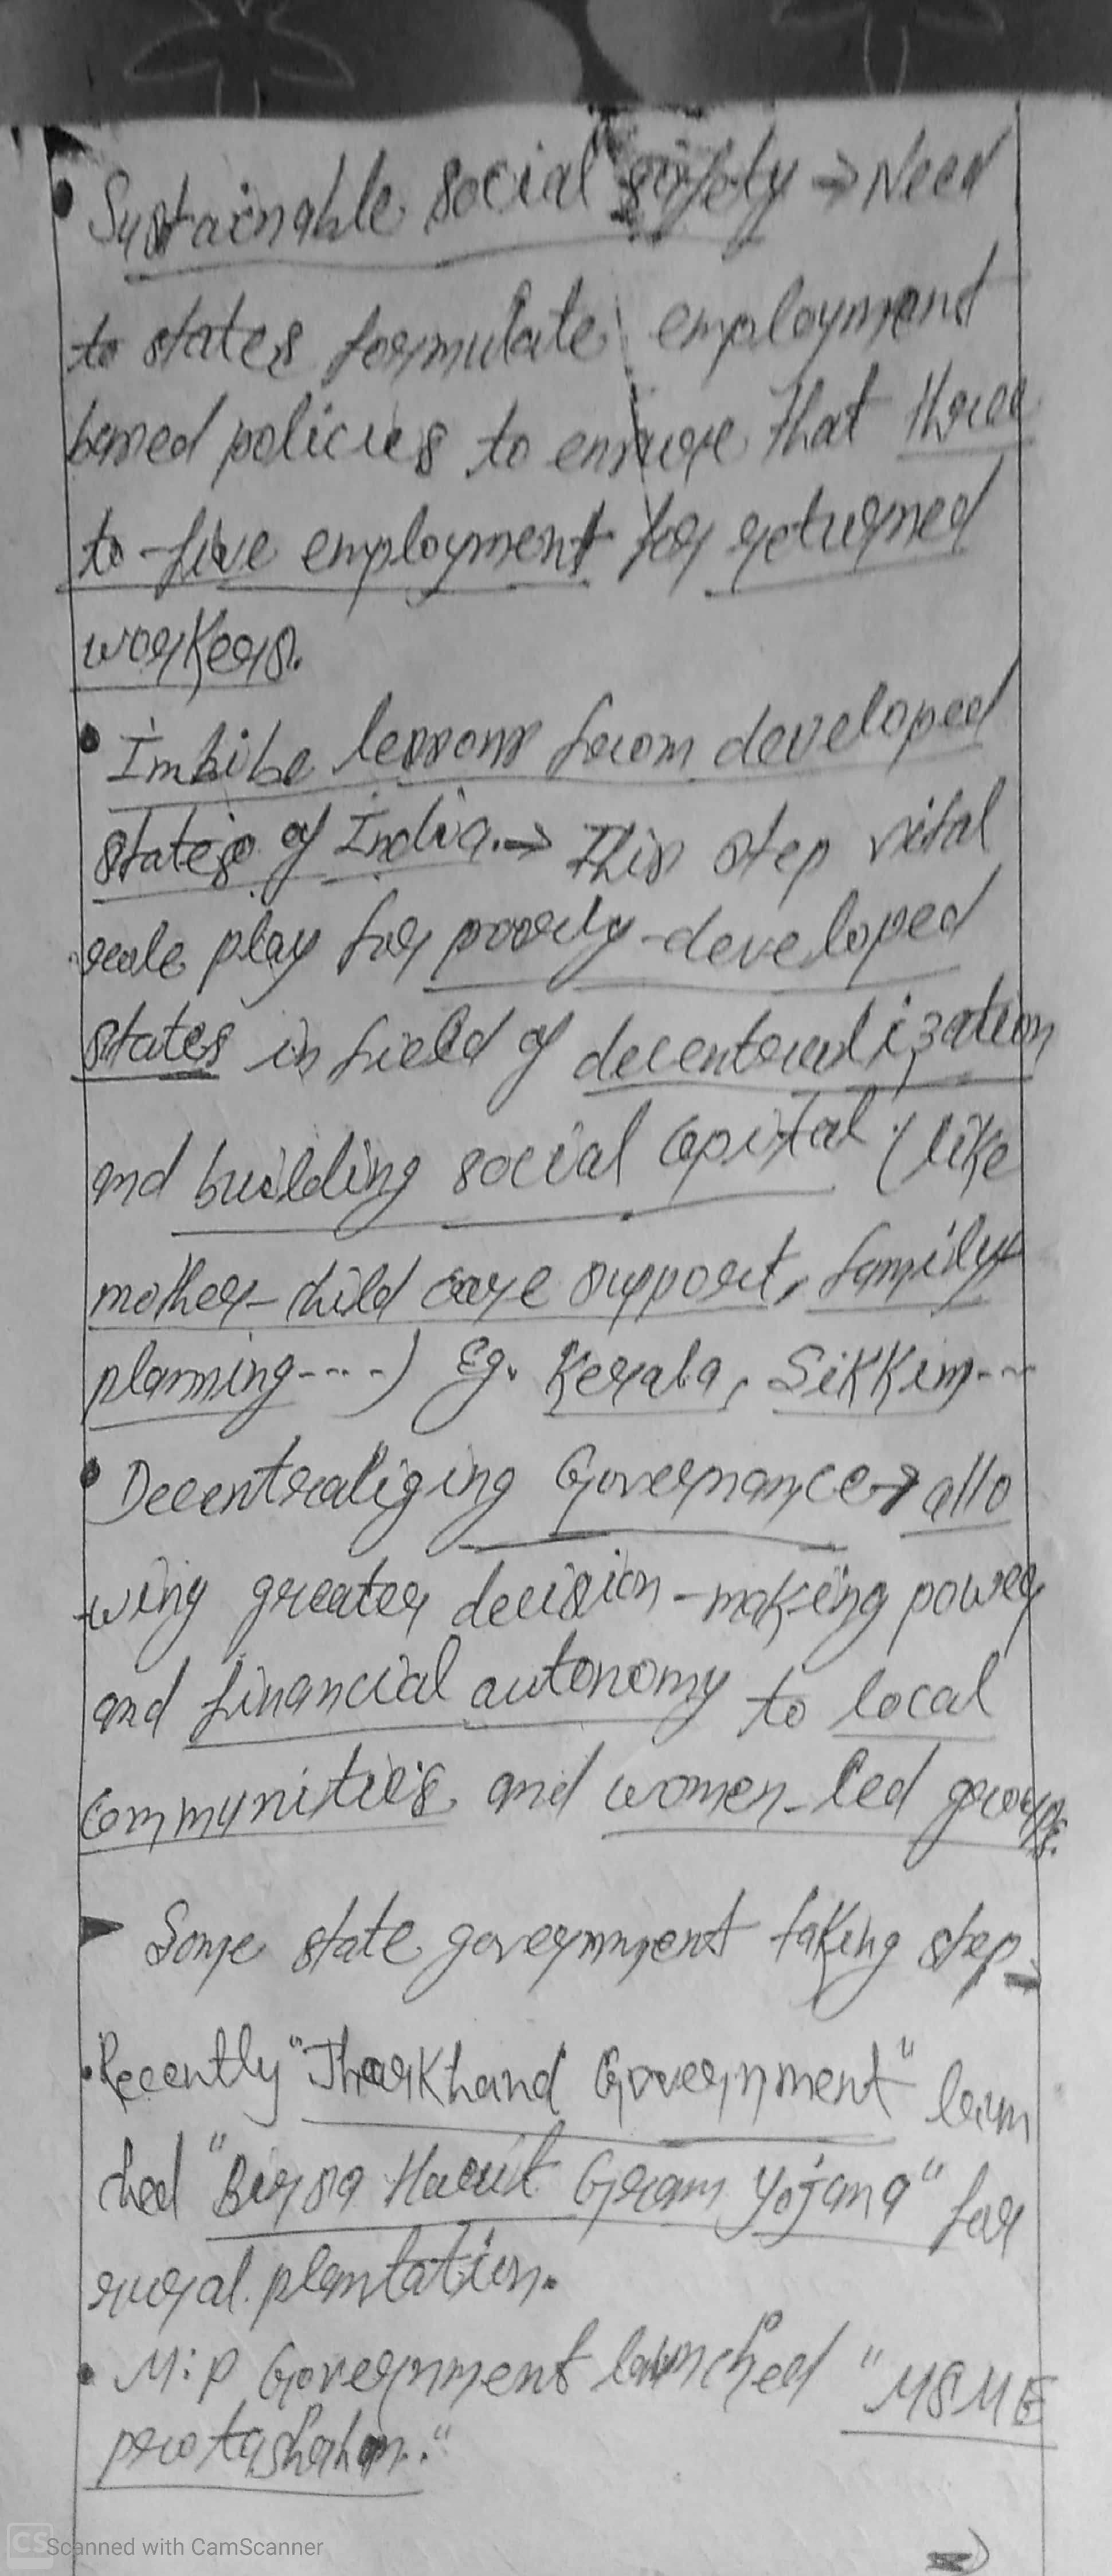 • Sustainable social safety → Need
to states formulate employment
based policies to ensure that three
to-five employment for returned
workers.
• Imbibe lessons from developed
states of India. → This step vital
role play for poorly-developed
states in field of decentralization
and building social capital (like
mother-child care support, family
planning----) Eg. Kerala, Sikkim---
• Decentralizing Governance → allo
wing greater decision-making power
and financial autonomy to local
communities and women-led groups.
Some state government taking step_
• Recently "Jharkhand Government" laun
ched "Birsa Harit Gram Yojana" for
rural plantation.
• M.P Government launched "MSME
protashahan."
CS Scanned with CamScanner